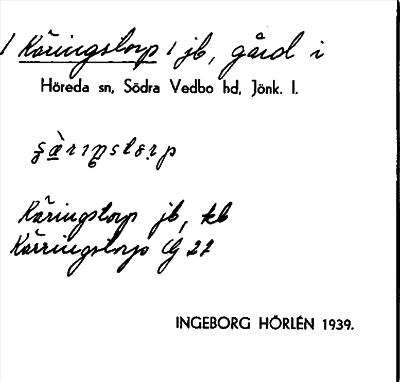 / Käringstorp / jb, gård i
Höreda sn, Södra Vedbo hd, Jönk. l.
Käringstorp jb, kb
Kärringstorp G 22
INGEBORG HÖRLÉN 1939.